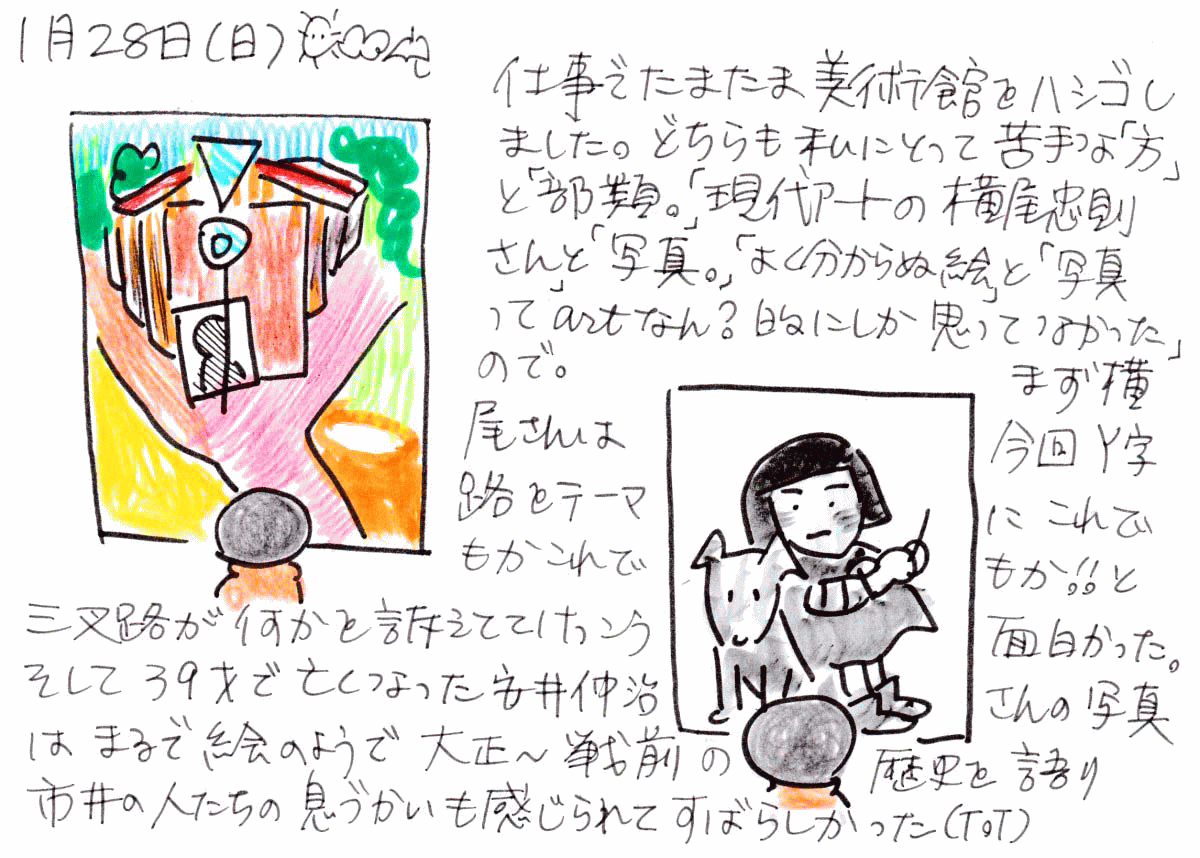 1月28日(日)
仕事でたまたま美術館をハシゴし
ました。どちらも私にとって苦手な「方」
と「部類。」「現代アートの横尾忠則
さん」と「写真。」「よく分からぬ絵」と「写真
ってartなん?的にしか思ってなかった」
ので。 まず横
尾さんは 今回Y字
路をテーマ にこれで
もかこれで もか!!と
三叉路が何かを訴えててけっこう 面白かった。
そして39才で亡くなった安井仲治 さんの写真
はまるで絵のようで大正〜戦前の 歴史を語り
市井の人たちの息づかいも感じられてすばらしかった(ToT)